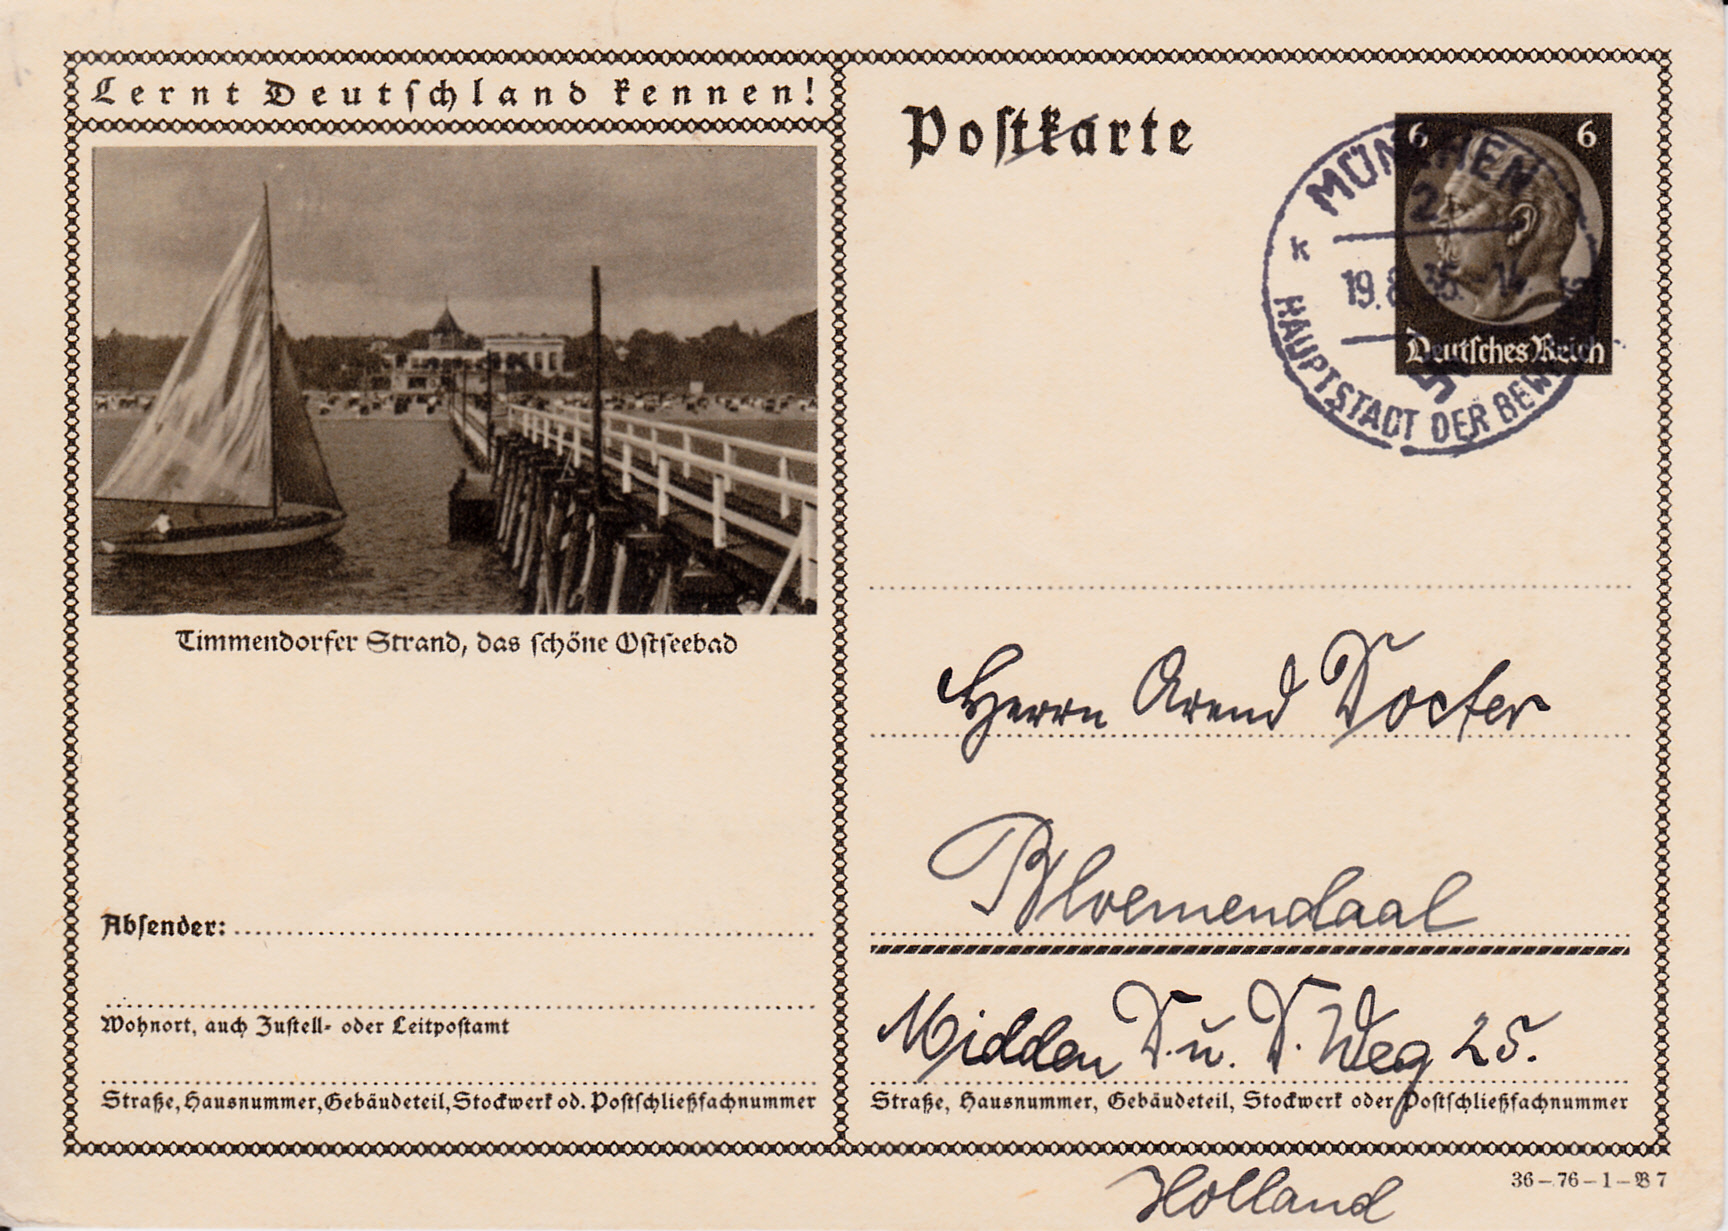 Lernt Deutschland kennen!
Timmendorfer Strand, das schöne Ostseebad
Absender:
Wohnort, auch Zustell- oder Leitpostamt
Straße, Hausnummer, Gebäudeteil, Stockwerk od. Postschließfachnummer
Postkarte
6 6
Deutsches Reich
MÜNCHEN
2
K
19.8.
HAUPTSTADT DER
Herrn Arend
Bloemendaal
Midden D. u. D. Weg 25.
Straße, Hausnummer, Gebäudeteil, Stockwerk oder Postschließfachnummer
Holland
36–76–1–B 7